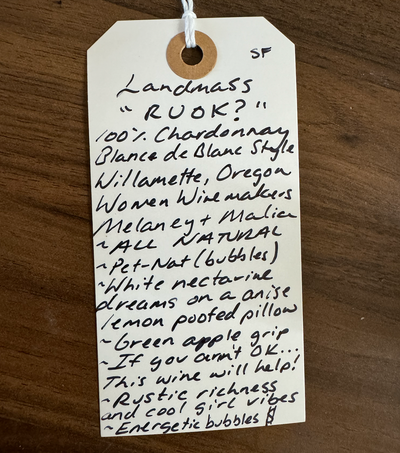 SF
Landmass
"RUOK?"
100% Chardonnay
Blance de Blanc Style
Willamette, Oregon
Women Winemakers
Melaney + Malia
~ALL NATURAL
~Pet-Nat (bubbles)
~White nectarine
dreams on a anise
lemon poofed pillow
~Green apple grip
~If you ain't OK...
This wine will help!
~Rustic richness
and cool girl vibes
~Energetic bubbles